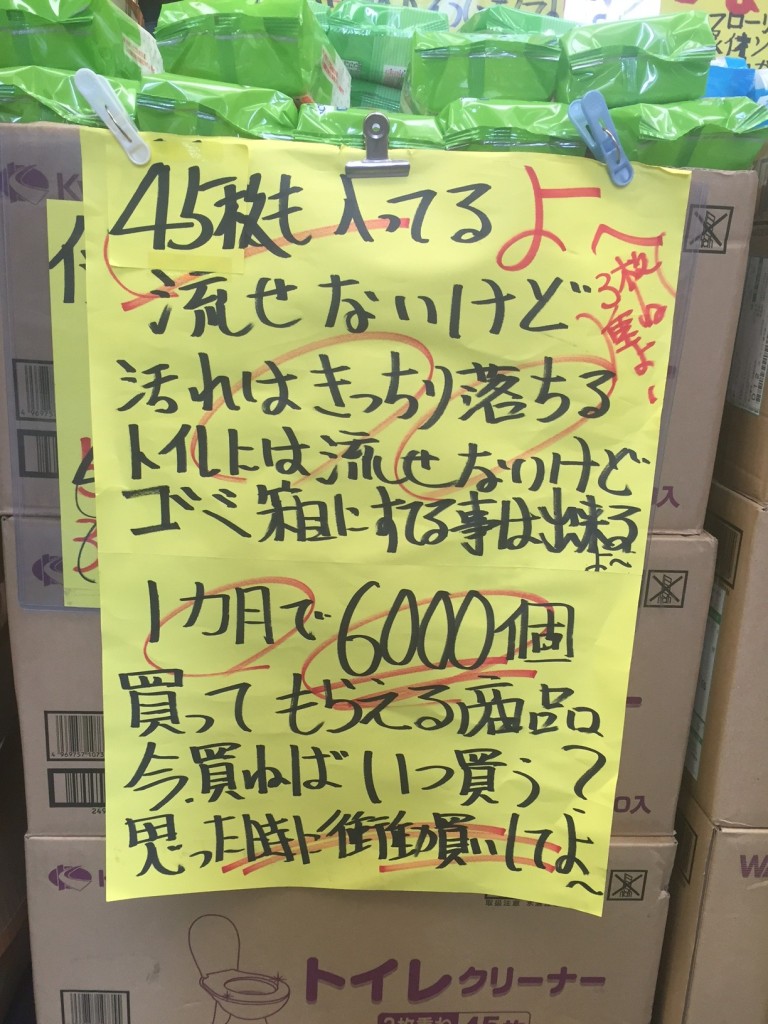 45枚も入ってるよ
流せないけど
汚れはきっちり落ちる
トイレには流せないけど
ゴミ箱にする事は出来る
よ〜
1カ月で6000個
買ってもらえる商品
今買ねばいつ買う?
思った時に衝動買いしてよ〜
トイレクリーナー
2枚重ね 45枚